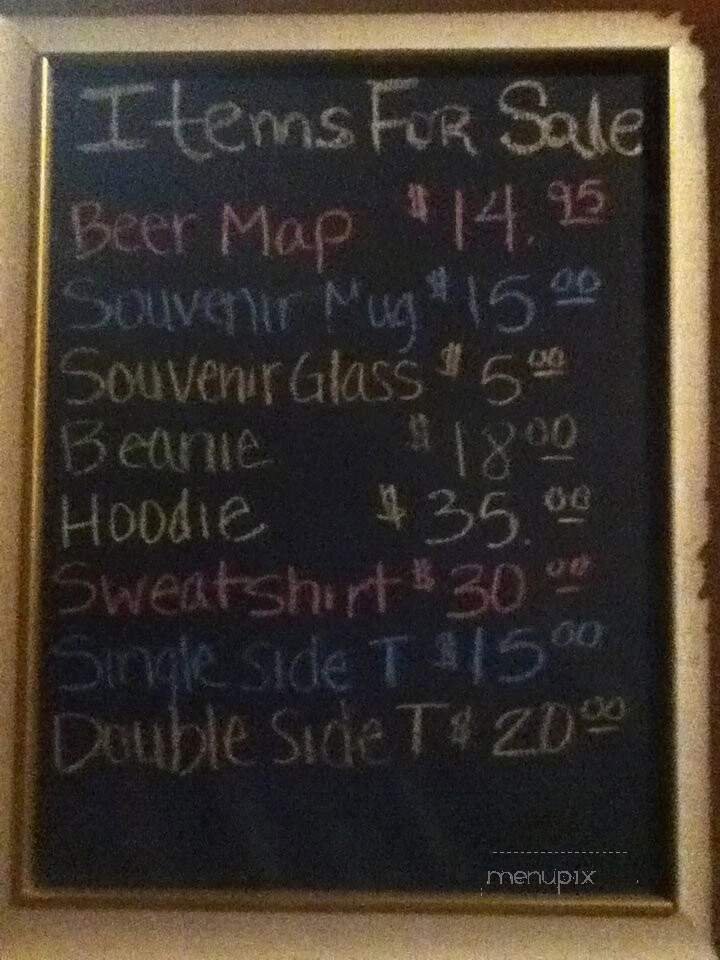 Items For Sale
Beer Map $14.95
Souvenir Mug $15 00
Souvenir Glass $5 00
Beanie $18 00
Hoodie $35. 00
Sweatshirt $30 00
Single Side T $15 00
Double Side T $20 00
menupix